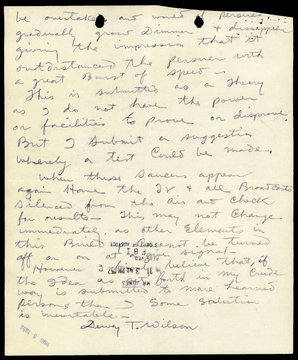 be overtaken and would persue,
gradually grow Dimmer & dissappear
giving the impression that it
outdistanced the persuer with
a great Burst of speed.
This is submitted as a Theory
as I do not have the power
or facilities to Prove or disprove.
But I Submit a suggestion
whereby a test Could be made.
When these Saucers appear
again Have the TV & all Broadcasts
Silenced from the air and check
for results— This may not Change
immediately, as other Elements in
this Build may not be turned
off or on at
However I believe that, if
the Idea as put forth in my Crude
way is submitted to more Learned
persons then Some Solution
is inevitable—
Dewey T. Wilson